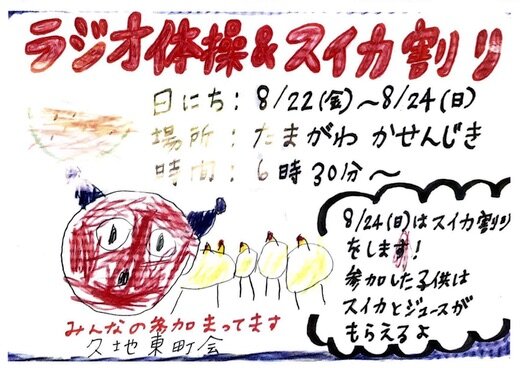 ラジオ体操&スイカ割り
日にち:8/22(金)~8/24(日)
場所:たまがわ かせんじき
時間:6時30分~
8/24(日)はスイカ割り
をします!
参加した子供は
スイカとジュースが
もらえるよ
みんなの参加まってます
久地東町会